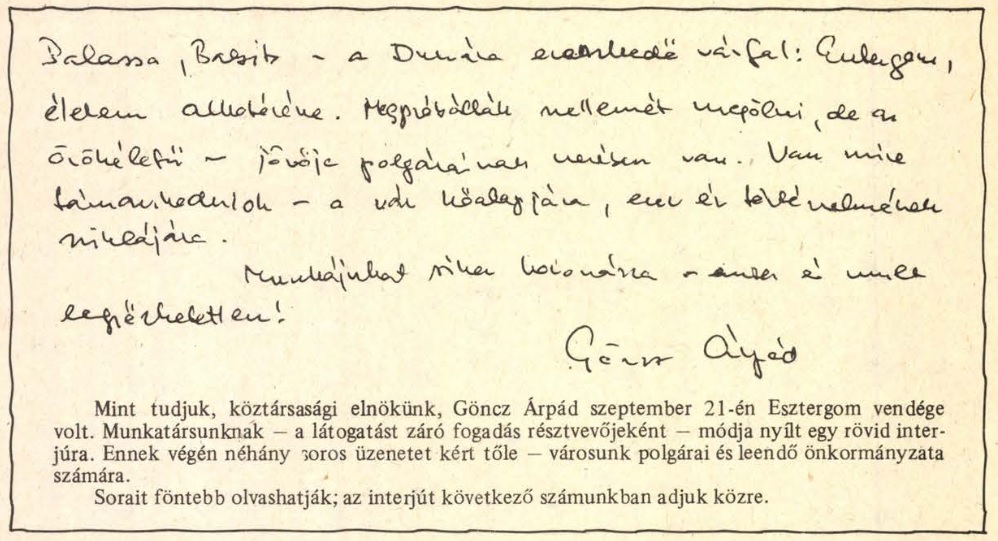 Balassa, Babits – a Dunára ereszkedő várfal: Esztergom,
életem alkotórésze. Megpróbálták szellemét megölni, de az
örökéletű – jövője polgárainak kezében van. Van mire
támaszkodniok – a vár kőalapjára, ezer év történelmének
sziklájára.
Munkájukat siker koronázza – ember és mult
legyőzhetetlen!
Göncz Árpád
Mint tudjuk, köztársasági elnökünk, Göncz Árpád szeptember 21-én Esztergom vendége
volt. Munkatársunknak – a látogatást záró fogadás résztvevőjeként – módja nyílt egy rövid inter-
júra. Ennek végén néhány soros üzenetet kért tőle – városunk polgárai és leendő önkormányzata
számára.
Sorait föntebb olvashatják; az interjút következő számunkban adjuk közre.